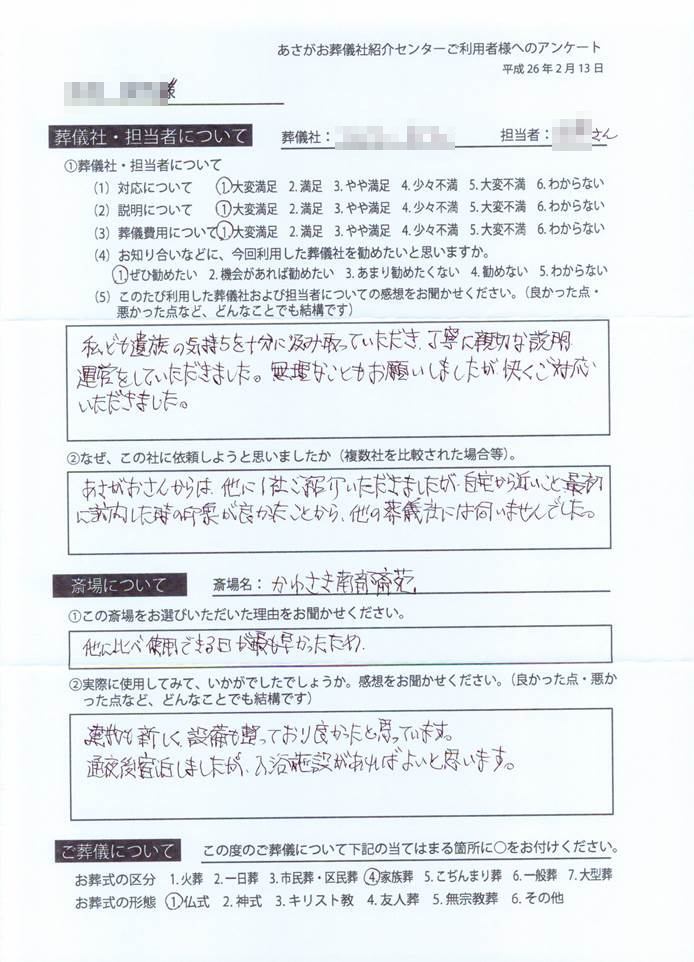 あさがお葬儀社紹介センターご利用者様へのアンケート
平成26年2月13日
様
葬儀社・担当者について 葬儀社： 担当者： さん
①葬儀社・担当者について
（1）対応について ①大変満足 2.満足 3.やや満足 4.少々不満 5.大変不満 6.わからない
（2）説明について ①大変満足 2.満足 3.やや満足 4.少々不満 5.大変不満 6.わからない
（3）葬儀費用について ①大変満足 2.満足 3.やや満足 4.少々不満 5.大変不満 6.わからない
（4）お知り合いなどに、今回利用した葬儀社を勧めたいと思いますか。
①ぜひ勧めたい 2.機会があれば勧めたい 3.あまり勧めたくない 4.勧めない 5.わからない
（5）このたび利用した葬儀社および担当者についての感想をお聞かせください。（良かった点・
悪かった点など、どんなことでも結構です）
私ども遺族の気持ちを十分に汲み取っていただき、丁寧に親切な説明
運営をしていただきました。無理なこともお願いしましたが快くご対応
いただきました。
②なぜ、この社に依頼しようと思いましたか（複数社を比較された場合等）。
あさがおさんからは、他に1社ご紹介いただきましたが、自宅から近いこと最初
に訪問した時の印象が良かったことから、他の葬儀社には伺いませんでした。
斎場について 斎場名：かわさき南部斎苑
①この斎場をお選びいただいた理由をお聞かせください。
他に比べ使用できる日が最も早かったため
②実際に使用してみて、いかがでしたでしょうか。感想をお聞かせください。（良かった点・悪か
った点など、どんなことでも結構です）
建物も新しく、設備も整っており良かったと思っています。
通夜後宿泊しましたが、入浴施設があればよいと思います。
ご葬儀について この度のご葬儀について下記の当てはまる箇所に○をお付けください。
お葬式の区分 1.火葬 2.一日葬 3.市民葬・区民葬 ④家族葬 5.こぢんまり葬 6.一般葬 7.大型葬
お葬式の形態 ①仏式 2.神式 3.キリスト教 4.友人葬 5.無宗教葬 6.その他